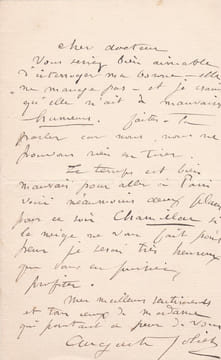 cher docteur
Vous seriez bien aimable
d'interroger ma bonne - elle
ne mange pas - et je crains
qu'elle n'ait de mauvaises
humeurs. faites-la
parler car nous, nous ne
pouvons rien en tirer.
Le temps est bien
mauvais pour aller à Paris
voici néanmoins deux places
pour ce soir
la neige ne vous fait pas
peur je serai très heureux
que vous en puissiez
profiter.
mes meilleurs sentiments
et tous ceux de madame
qui pourtant a peur de vous